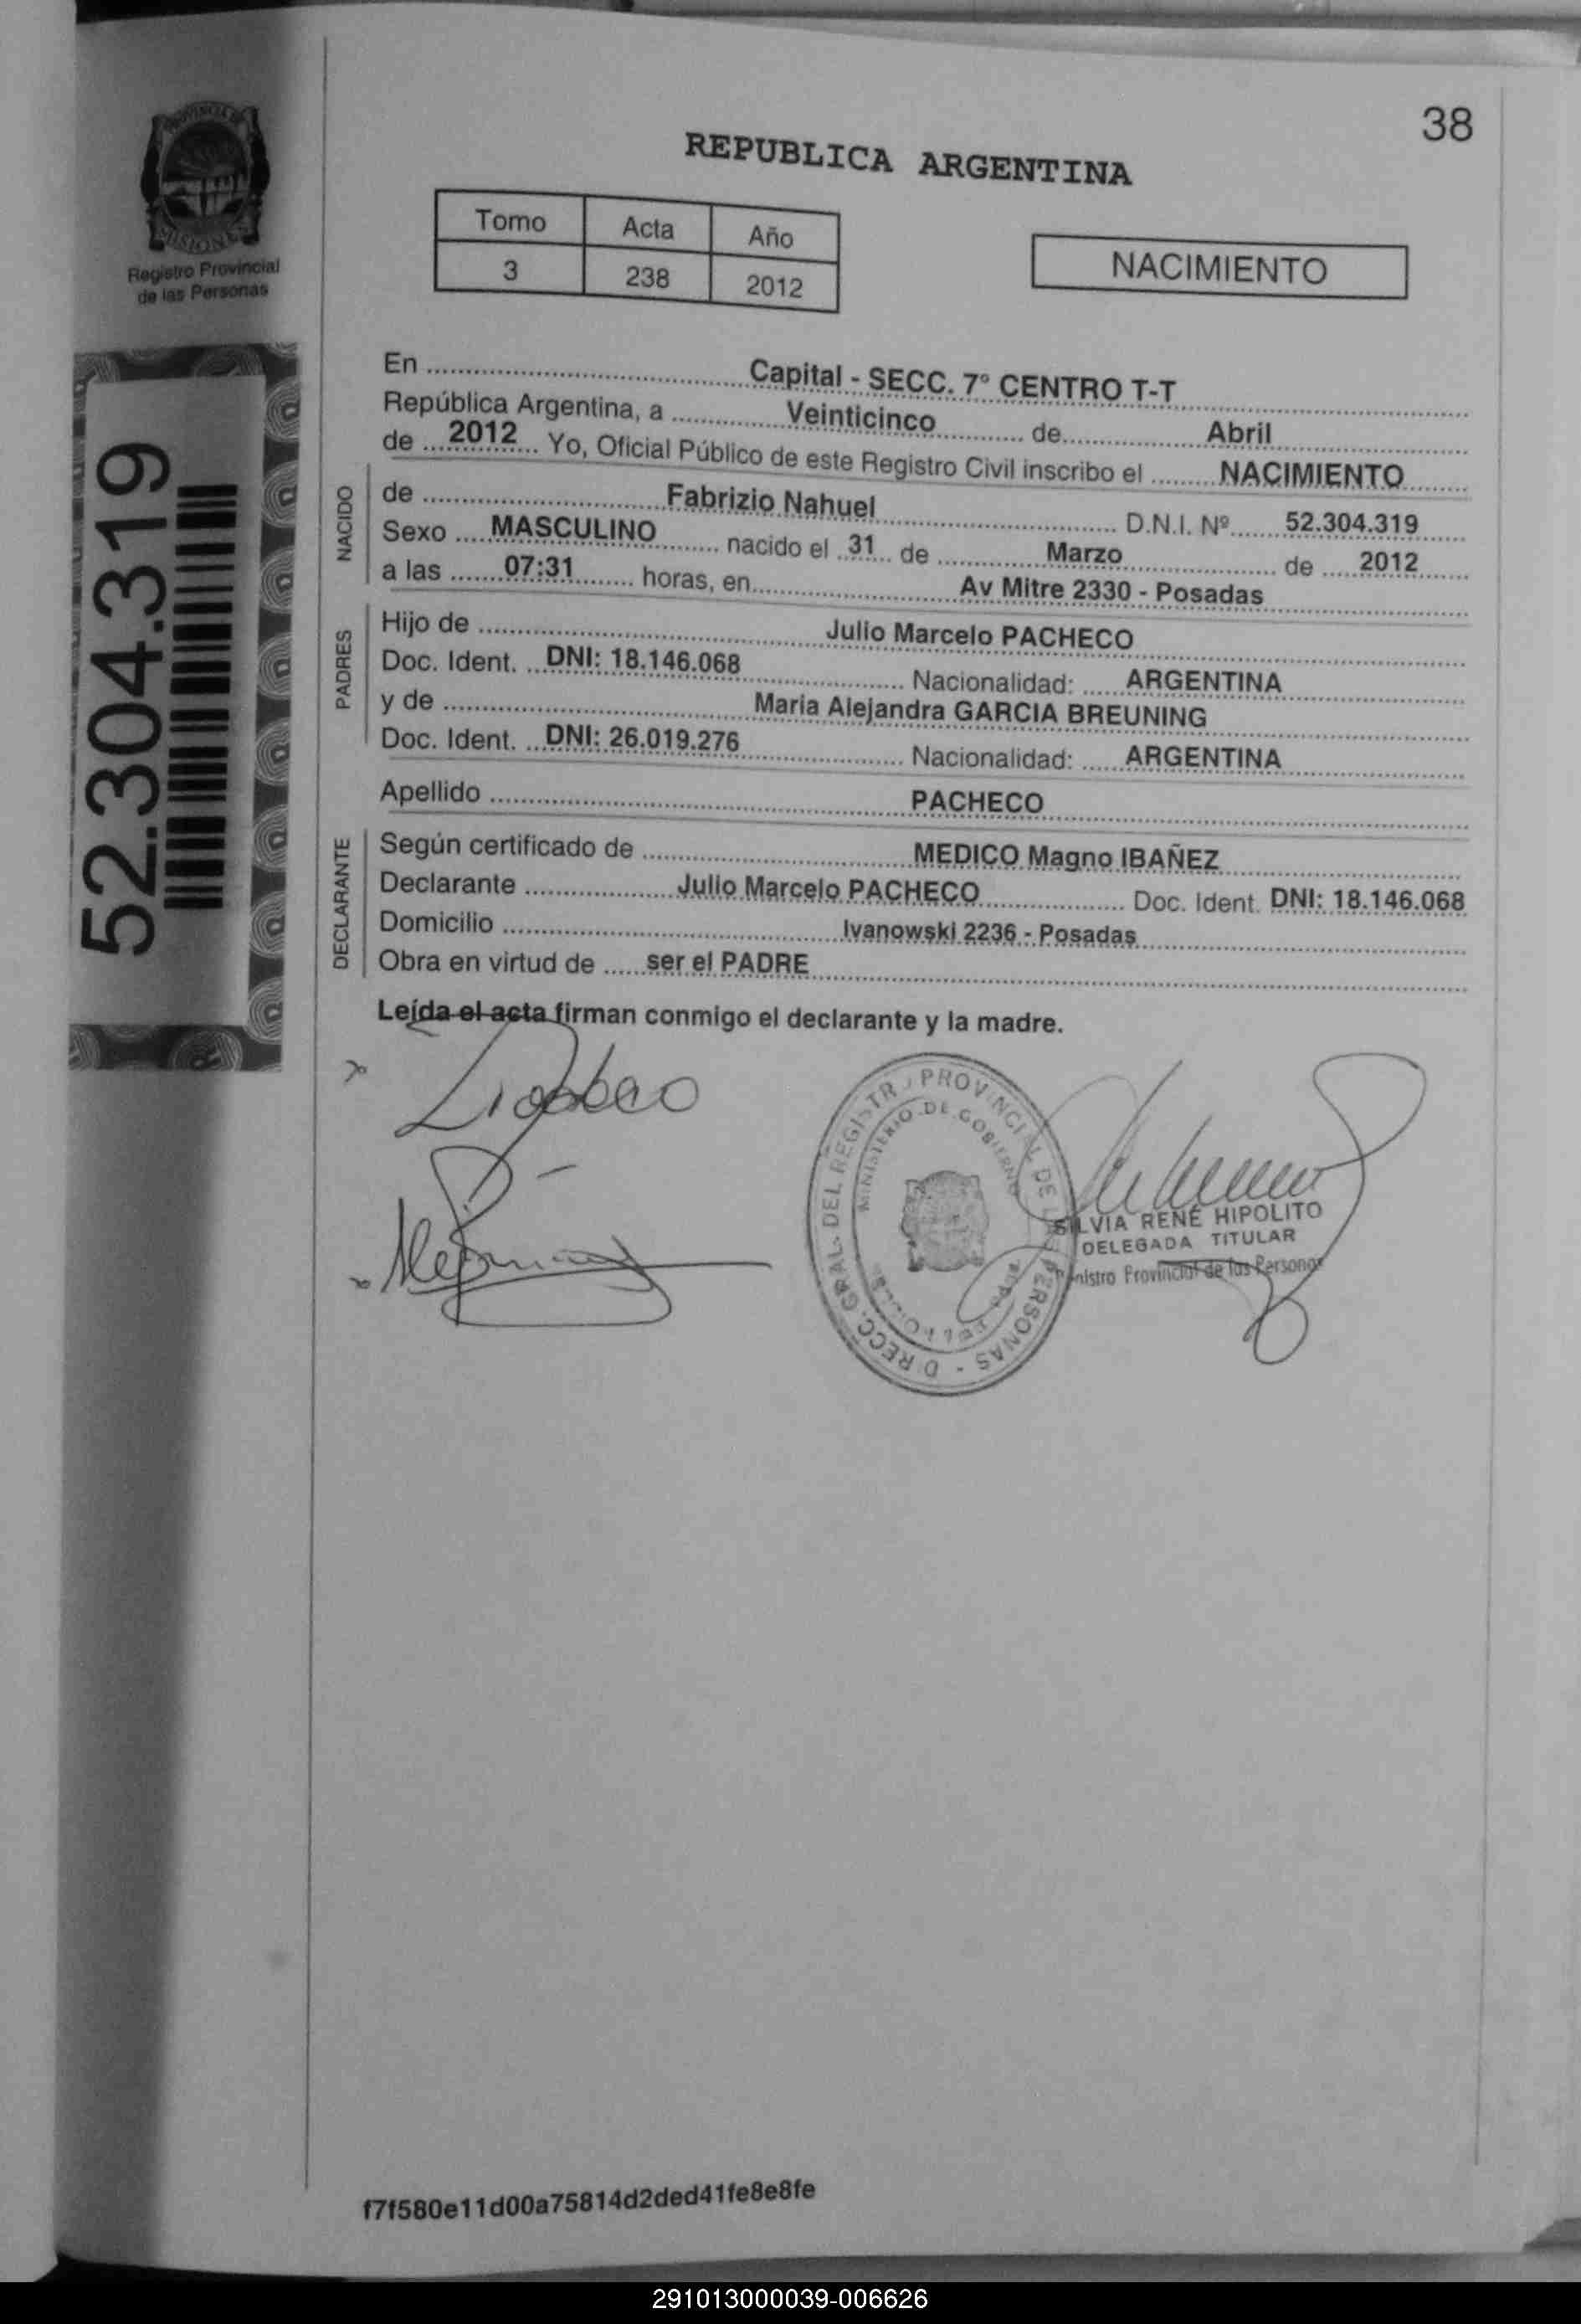 38
PROVINCIA DE
MISIONES
Registro Provincial
de las Personas
52.304.319
REPUBLICA ARGENTINA
Tomo Acta Año
3 238 2012
NACIMIENTO
En Capital - SECC. 7° CENTRO T-T
República Argentina, a Veinticinco de Abril
de 2012 Yo, Oficial Público de este Registro Civil inscribo el NACIMIENTO
NACIDO
de Fabrizio Nahuel D.N.I. Nº 52.304.319
Sexo MASCULINO nacido el 31 de Marzo de 2012
a las 07:31 horas, en Av Mitre 2330 - Posadas
PADRES
Hijo de Julio Marcelo PACHECO
Doc. Ident. DNI: 18.146.068 Nacionalidad: ARGENTINA
y de Maria Alejandra GARCIA BREUNING
Doc. Ident. DNI: 26.019.276 Nacionalidad: ARGENTINA
Apellido PACHECO
DECLARANTE
Según certificado de MEDICO Magno IBAÑEZ
Declarante Julio Marcelo PACHECO Doc. Ident. DNI: 18.146.068
Domicilio Ivanowski 2236 - Posadas
Obra en virtud de ser el PADRE
Leída el acta firman conmigo el declarante y la madre.
DIRECC. GRAL. DEL REGISTRO PROVINCIAL DE LAS PERSONAS -
MINISTERIO DE GOBIERNO
SILVIA RENÉ HIPOLITO
DELEGADA TITULAR
Registro Provincial de las Personas
f7f580e11d00a75814d2ded41fe8e8fe
291013000039-006626